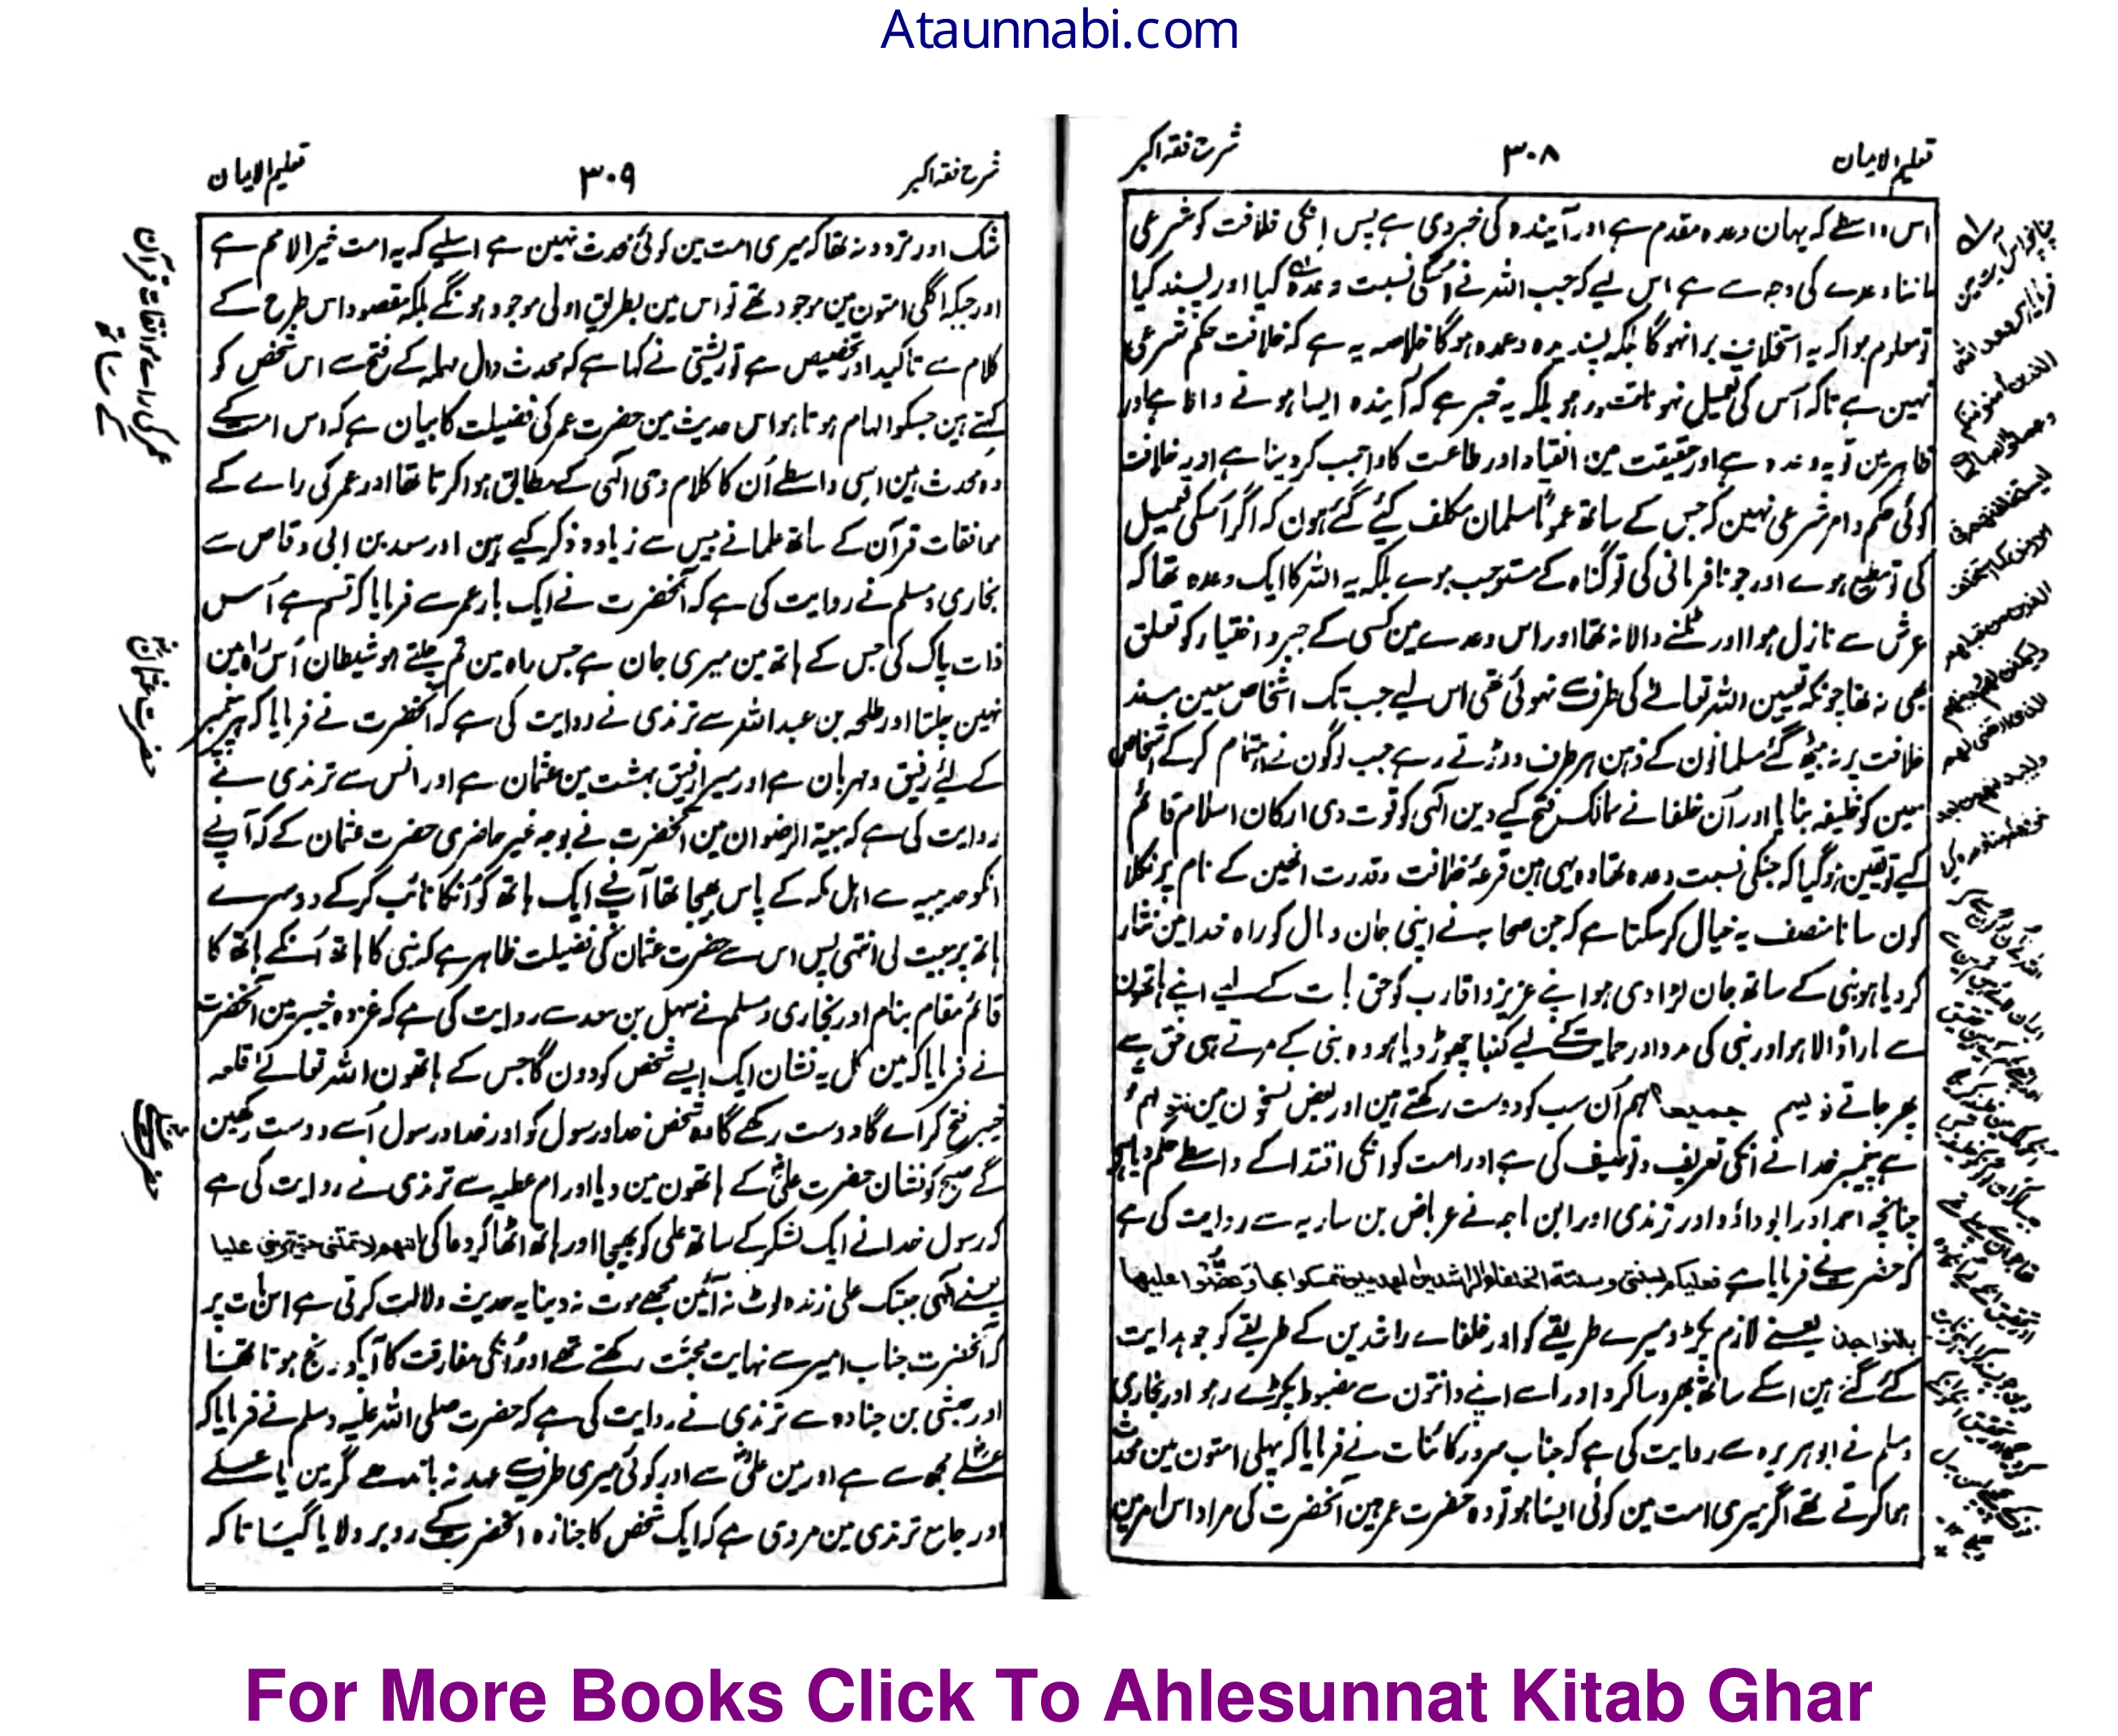 Ataunnabi.com
تعلیم الایمان ۳۰۸ شرح فقہ اکبر
اس واسطے کہ یہان وعدہ مقدم ہے اور آیندہ کی خبر دی ہے پس انکی خلافت کو شرعی
ماننا وعدے کی وجہ سے ہے اس لیے کہ جب اللہ نے اسکی نسبت وعدہ کیا اور پسند کیا
تو معلوم ہوا کہ یہ استخلاف برا نہوگا بلکہ پسندیدہ وعدہ ہوگا خلاصہ یہ ہے کہ خلافت حکم شرعی
نہین ہے تاکہ اس کی تعمیل نہو تا مقدور ہو بلکہ یہ خبر ہے کہ آیندہ ایسا ہونے والا ہے اور
ظاہر مین تو یہ وعدہ ہے اور حقیقت مین انقیاد اور طاعت کا واجب کر دینا ہے اور یہ خلافت
کوئی حکم و امر شرعی نہین کہ جس کے ساتھ عموماً مسلمان مکلف کیے گئے ہون کہ اگر اسکی تعمیل
کی تو مطیع ہوے اور جو نافرمانی کی تو گناہ کے مستوجب ہوے بلکہ یہ اللہ کا ایک وعدہ تھا کہ
عرش سے نازل ہوا اور ٹلنے والا نہ تھا اور اس وعدے مین کسی کے جبر و اختیار کو تعلق
بھی نہ تھا چونکہ تعیین اللہ تعالے کی طرف سے نہوئی تھی اس لیے جب تک اشخاص معین مسند
خلافت پر نہ بیٹھ گئے مسلمانون کے ذہن ہر طرف دوڑتے رہے جب لوگون نے اہتمام کرکے اشخاص
معین کو خلیفہ بنایا اور ان خلفا نے ممالک فتح کیے دین الٰہی کو قوت دی ارکان اسلام قائم
کیے تو یقین ہوگیا کہ جنکی نسبت وعدہ تھا وہ یہی ہین قرعۂ خلافت و قدرت انھین کے نام پر نکلا
کون سا نامنصف یہ خیال کر سکتا ہے کہ جن صحابہ نے اپنی جان و مال کو راہ خدا مین نثار
کردیا ہو نبی کے ساتھ جان لڑا دی ہو اپنے عزیز و اقارب کو حق بات کے لیے اپنے ہاتھون
سے مار ڈالا ہو اور نبی کی مدد اور حمایت کے لیے کنبا چھوڑ دیا ہو وہ نبی کے مرتے ہی حق سے
پھر جاتے جمیعا ہم ان سب کو دوست رکھتے ہین اور بعض نسخون مین
ہے پیمبر خدا نے انکی تعریف و توصیف کی ہے اور امت کو انکی اقتدا کے واسطے حکم دیا ہے
چنانچہ احمد اور ابو داؤد اور ترمذی اور ابن ماجہ نے عرباض بن ساریہ سے روایت کی ہے
کہ حضرت نے فرمایا ہے فعلیکم بسنتی وسنۃ الخلفاء الراشدین المہدیین تمسکوا بہا وعضوا علیہا
بالنواجذ یعنے لازم پکڑو میرے طریقے کو اور خلفاے راشدین کے طریقے کو جو ہدایت
کئے گئے ہین اسکے ساتھ بھروسا کرو اور اسے اپنے دانتون سے مضبوط پکڑے رہو اور بخاری
و مسلم نے ابو ہریرہ سے روایت کی ہے کہ جناب سرور کائنات نے فرمایا کہ پہلی امتون مین محدث
ہوا کرتے تھے اگر میری امت مین کوئی ایسا ہو تو وہ حضرت عمر ہین آنحضرت کی مراد اس امر مین
وعد اللہ
الذین آمنوا منکم
وعملوا الصالحات
لیستخلفنہم فی
الارض کما استخلف
الذین من قبلہم
ولیمکنن لہم دینہم
الذی ارتضی لہم
ولیبدلنہم من بعد
خوفہم امنا
شرح فقہ اکبر ۳۰۹ تعلیم الایمان
شک اور تردد نہ تھا کہ میری امت مین کوئی محدث نہین ہے اسلیے کہ یہ امت خیر الامم ہے
اور جبکہ اگلی امتون مین موجود تھے تو اس مین بطریق اولی موجود ہونگے بلکہ مقصود اس طرح کے
کلام سے تاکید اور تخصیص ہے تورپشتی نے کہا ہے کہ محدث دال مہملہ کے فتح سے اس شخص کو
کہتے ہین جسکو الہام ہوتا ہو اس حدیث مین حضرت عمر کی فضیلت کا بیان ہے کہ اس امت کے
وہ محدث ہین اسی واسطے اُن کا کلام وحی الٰہی کے مطابق ہوا کرتا تھا اور عمر کی راے کے
موافقات قرآن کے ساتھ علما نے بیس سے زیادہ ذکر کیے ہین اور سعد بن ابی وقاص سے
بخاری و مسلم نے روایت کی ہے کہ آنحضرت نے ایک بار عمر سے فرمایا کہ قسم ہے اُس
ذات پاک کی جس کے ہاتھ مین میری جان ہے جس راہ مین تم چلتے ہو شیطان اُس راہ مین
نہین چلتا اور طلحہ بن عبد اللہ سے ترمذی نے روایت کی ہے کہ آنحضرت نے فرمایا کہ ہر پیغمبر
کے لئے رفیق و مہربان ہے اور میرا رفیق بہشت مین عثمان ہے اور انس سے ترمذی نے
روایت کی ہے کہ بیعۃ الرضوان مین آنحضرت نے بوجہ غیر حاضری حضرت عثمان کے کہ آپ نے
انکو حدیبیہ سے اہل مکہ کے پاس بھیجا تھا آپ نے ایک ہاتھ کو اُنکا نائب کرکے دوسرے
ہاتھ پر بیعت لی انتہی پس اس سے حضرت عثمان کی فضیلت ظاہر ہے کہ نبی کا ہاتھ اُنکے ہاتھ کا
قائم مقام بنا اور بخاری و مسلم نے سہل بن سعد سے روایت کی ہے کہ غزوہ خیبر مین آنحضرت
نے فرمایا کہ مین کل یہ نشان ایک ایسے شخص کو دون گا جس کے ہاتھون اللہ تعالے قلعہ
خیبر فتح کراے گا دوست رکھے گا وہ شخص خدا و رسول کو اور خدا و رسول اُسے دوست رکھین
گے صبح کو نشان حضرت علیؓ کے ہاتھون مین دیا اور ام عطیہ سے ترمذی نے روایت کی ہے
کہ رسول خدا نے ایک لشکر کے ساتھ علی کو بھیجا اور ہاتھ اٹھا کر دعا کی اللہم لا تمتنی حتی ترینی علیا
یعنے الٰہی جبتک علی زندہ لوٹ نہ آئین مجھے موت نہ دینا یہ حدیث دلالت کرتی ہے اس بات پر
کہ آنحضرت جناب امیر سے نہایت محبت رکھتے تھے اور اُنکی مفارقت کا آپکو رنج ہوتا تھا
اور حبشی بن جنادہ سے ترمذی نے روایت کی ہے کہ حضرت صلی اللہ علیہ وسلم نے فرمایا کہ
علی مجھ سے ہے اور مین علیؓ سے اور کوئی میری طرف سے عہد نہ باندھے مگر مین یا علی
اور جامع ترمذی مین مروی ہے کہ ایک شخص کا جنازہ آنحضرت کے روبرو لایا گیا تاکہ
عمر کی راے موافقات قرآن
کے ساتھ
حضرت عثمان
حضرت علی
For More Books Click To Ahlesunnat Kitab Ghar